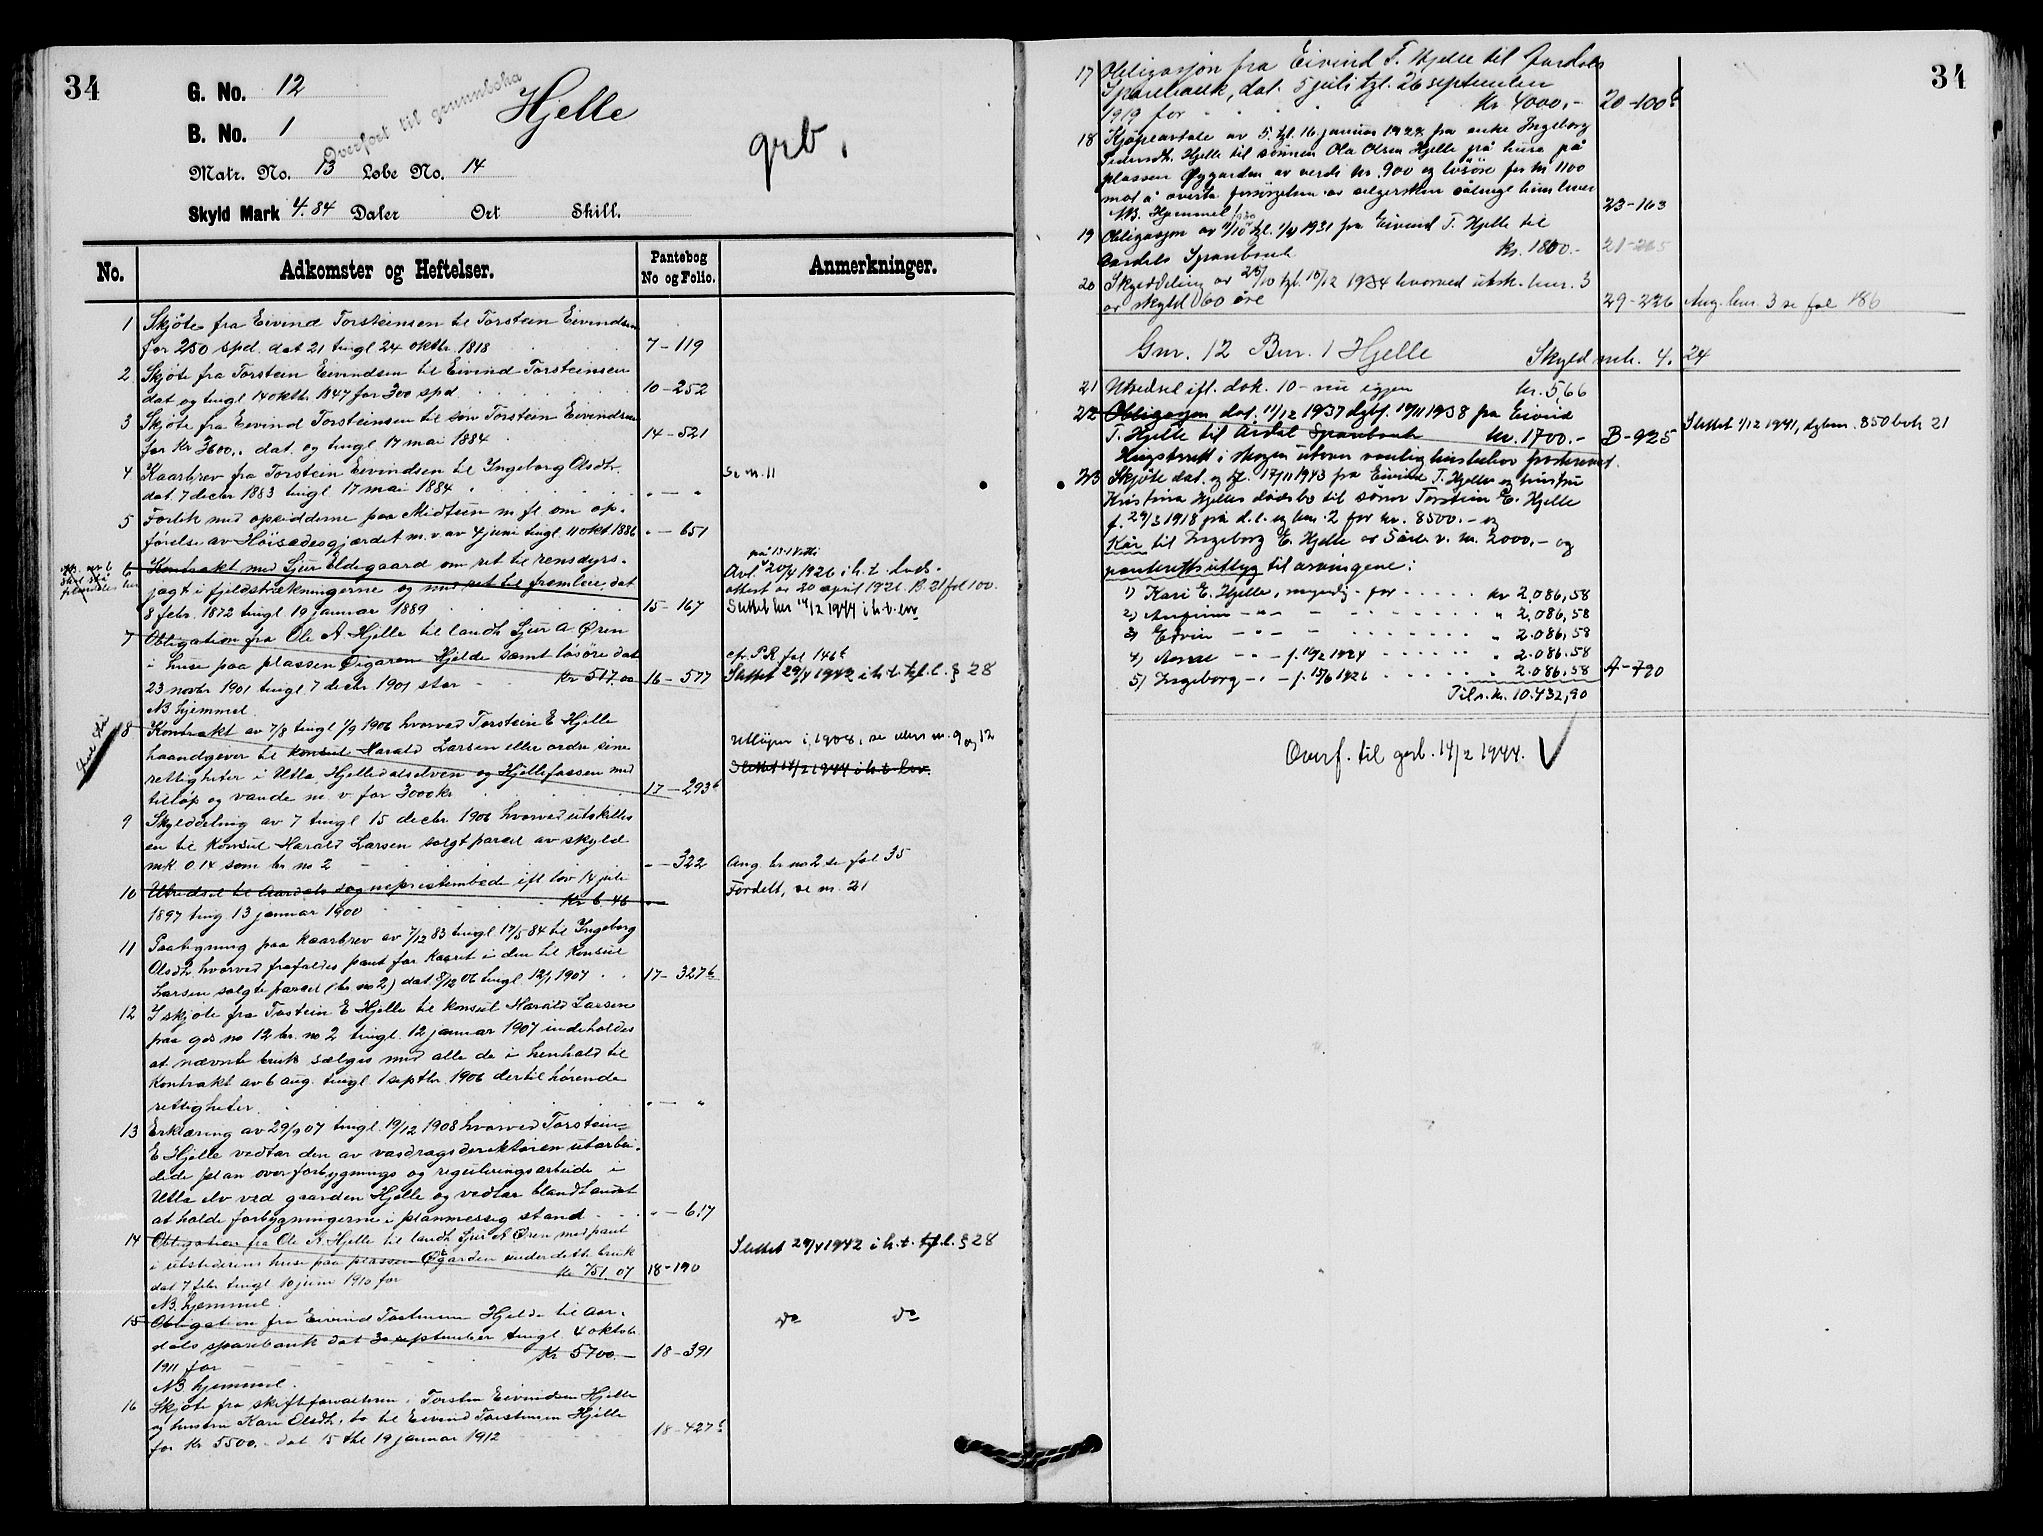 34
G. No. 12
B. No. 1
Overført til grunnboka
Hjelle
grb.
Matr. No. 13 Løbe No. 14
Skyld Mark 4.84 Daler Ort Skill.
No. Adkomster og Heftelser. Pantebog No og Folio. Anmerkninger.
1 Skjøte fra Eivind Torsteinsen til Torstein Eivindsen
for 250 spd. dat 21 tingl 24 oktbr. 1818 7-119
2 Skjøte fra Torstein Eivindsen til Eivind Torsteinsen
dat og tingl 14 oktbr. 1847 for 300 spd 10-252
3 Skjøte fra Eivind Torsteinsen til søn Torstein Eivindsen
for Kr 3600,. dat. og tingl 17 mai 1884 14-521
4 Kaarbrev fra Torstein Eivindsen til Ingeborg Olsdtr. Se nr. 11
dat 7 decbr 1883 tingl 17 mai 1884 " - "
5 Forlik med opsidderne paa Midtun m. fl. om op-
førelse av Høisædesgjærdet m. v av 4 juni tingl. 11 okt 1886 " - 651
6 Kontrakt med Sjur Eldegaard om ret til rensdyrs-
jagt i fjeldstrækningerne og med ret til fremleie, dat
8 febr. 1872 tingl 19 januar 1889 15-167
på 13-1 Vetti
Avl. 20/4 1926 i h. t. lods-
attest av 20 april 1926. B. 21 fol 100.
Slettet her 14/2 1944 i h. t. lov
7 Obligation fra Ole A Hjelle til landh. Sjur A. Øren
i huse paa plassen Øigaren Hjelde samt løsøre dat
23 novbr 1901 tingl 7 decbr 1901 stor Kr 517.00 16-577
cf. P.R. fol 146b
Slettet 29/4 1942 i h. t. tgl. l. § 28
NB hjemmel
8 Kontrakt av 7/8 tingl 1/9 1906 hvorved Torstein E Hjelle
haandgiver til konsul Harald Larsen eller ordre sine
rettigheter i Utla Hjelledalselven og Hjellefossen med
tilløp og vande m v for 3000 kr 17-293b
Utløper i 1908, se ellers nr. 9 og 12
Slettet 14/2 1944 i h. t. lov.
9 Skylddeling av 7 tingl 15 decbr. 1906 hvorved utskilles
en til konsul Harald Larsen solgt parcel av skyld
mk 0.14 som br. no 2 " - 322 Ang. br no 2 se fol 35
10 Utredsel til Aardals sogneprestembede ifl lov 14 juli
1897 ting. 13 januar 1900 Kr 6.46 " Fordelt, se nr. 21
11 Paategning paa kaarbrev av 7/12 83 tingl. 17/5 84 til Ingeborg
Olsdtr. hvorved frafaldes pant for kaaret i den til konsul
Larsen solgte parcel (br. no 2) dat 8/12 06 tingl 12/1 1907 17-327b
12 I skjøte fra Tostein E Hjelle til konsul Harald Larsen
paa gds no 12 br. no 2 tingl. 12 januar 1907 indeholdes
at nævnte bruk sælges med alle de i henhold til
kontrakt av 6 aug. tingl. 1 septbr. 1906 dertil hørende
rettigheter. " - "
13 Erklæring av 29/9 07 tingl. 19/12 1908 hvorved Torstein
E Hjelle vedtar den av vasdragsdirektøren utarbei-
dede plan over forbygnings og reguleringsarbeide i
Utla elv ved gaarden Hjelle og vedtar blandt andet
at holde forbygningerne i planmessig stand " - 617
14 Obligation fra Ole A. Hjelle til landh. Sjur A Øren med pant
i utstederens huse paa plassen Øgarden under dette bruk
dat 7 febr. tingl 10 juni 1910 for Kr 751.07 18-190
Slettet 29/4 1942 i h. t. tgl. l. § 28
NB. hjemmel.
15 Obligation fra Eivind Torsteinsen Hjelde til Aar-
dals sparebank dat 30 september tingl. 4 oktober
1911 for Kr 5700.- 18-391
do do
NB hjemmel.
16 Skjøte fra skifteforvalteren i Torstein Eivindsen Hjelle
og hustru Kari Olsdtr. bo til Eivind Torsteinsen Hjelle
for Kr 5500.- dat 15 tbl 19 januar 1912 18-427b
34
17 Obligasjon fra Eivind T. Hjelle til Aardals
Sparebank, dat. 5 juli tgl. 26 september
1919 for Kr. 4000,- 20-100b
18 Kjøpeavtale av 5. tgl. 16. januar 1922 fra enke Ingeborg
Pedersdtr. Hjelle til sønnen Ola Olsen Hjelle på huse på
plassen Øygarden av verdi kr. 900 og løsøre for kr 1100
mot å overta forsørgelsen av selgersken sålenge hun lever
NB. Hjemmel 23-163
19 Obligasjon av 7/10 1930 tgl. 1/4 1931 fra Eivind T. Hjelle til
Aardals Sparebank Kr. 1800.- 21-265
20 Skylddeling av 25/10 tgl. 15/12 1934 hvorved utsk. bnr. 3
av skyld 60 øre 29-226 Ang. bnr. 3 se fol 186
Gnr. 12 Bnr. 1 Hjelle Skyld mk. 4.24
21 Utredsel ifl. dok. 10 - nu igjen kr. 5,66
22 Obligasjon dat. 11/12 1937 dgbf. 19/1 1938 fra Eivind
T. Hjelle til Årdal Sparebank kr. 1700.- B-925 Slettet 1/12 1941, dgbnr. 850 bok 21
Hugstrett i skogen utover vanlig husbehov fraskrevet.
23 Skjøte dat. og tgl. 17/11 1943 fra Eivind T. Hjelle og hustru
Kristina Hjelles dødsbo til sønn Torstein E. Hjelle
f. 29/3 1918 på d. e. og bnr. 2 for kr. 8500.- og
Kår til Ingeborg E. Hjelle av 5 årl. v. kr. 2000,- og
panterettsutlegg til arvingene:
1) Kari E. Hjelle, myndig - for kr 2.086,58
2) Anfinn - " - " 2,086,58
3) Edvin - " - " 2.086,58
4) Anne - " - f. 10/2 1924 " 2.086.58
5) Ingeborg - " - f. 15/6 1926 " 2.086,58 A-790
Tils. kr. 10.432,90
Overf. til grb. 14/2 1944.